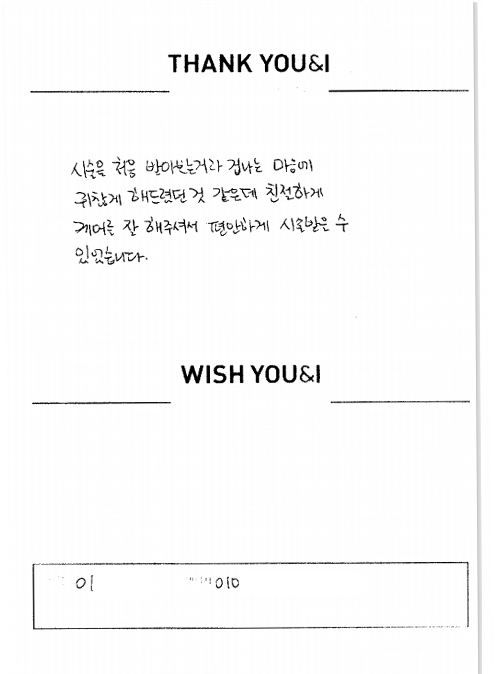 THANK YOU&I
시술을 처음 받아보는거라 겁나는 마음에
귀찮게 해드렸던 것 같은데 친절하게
케어를 잘 해주셔서 편안하게 시술받을 수
있었습니다.
WISH YOU&I
이 010